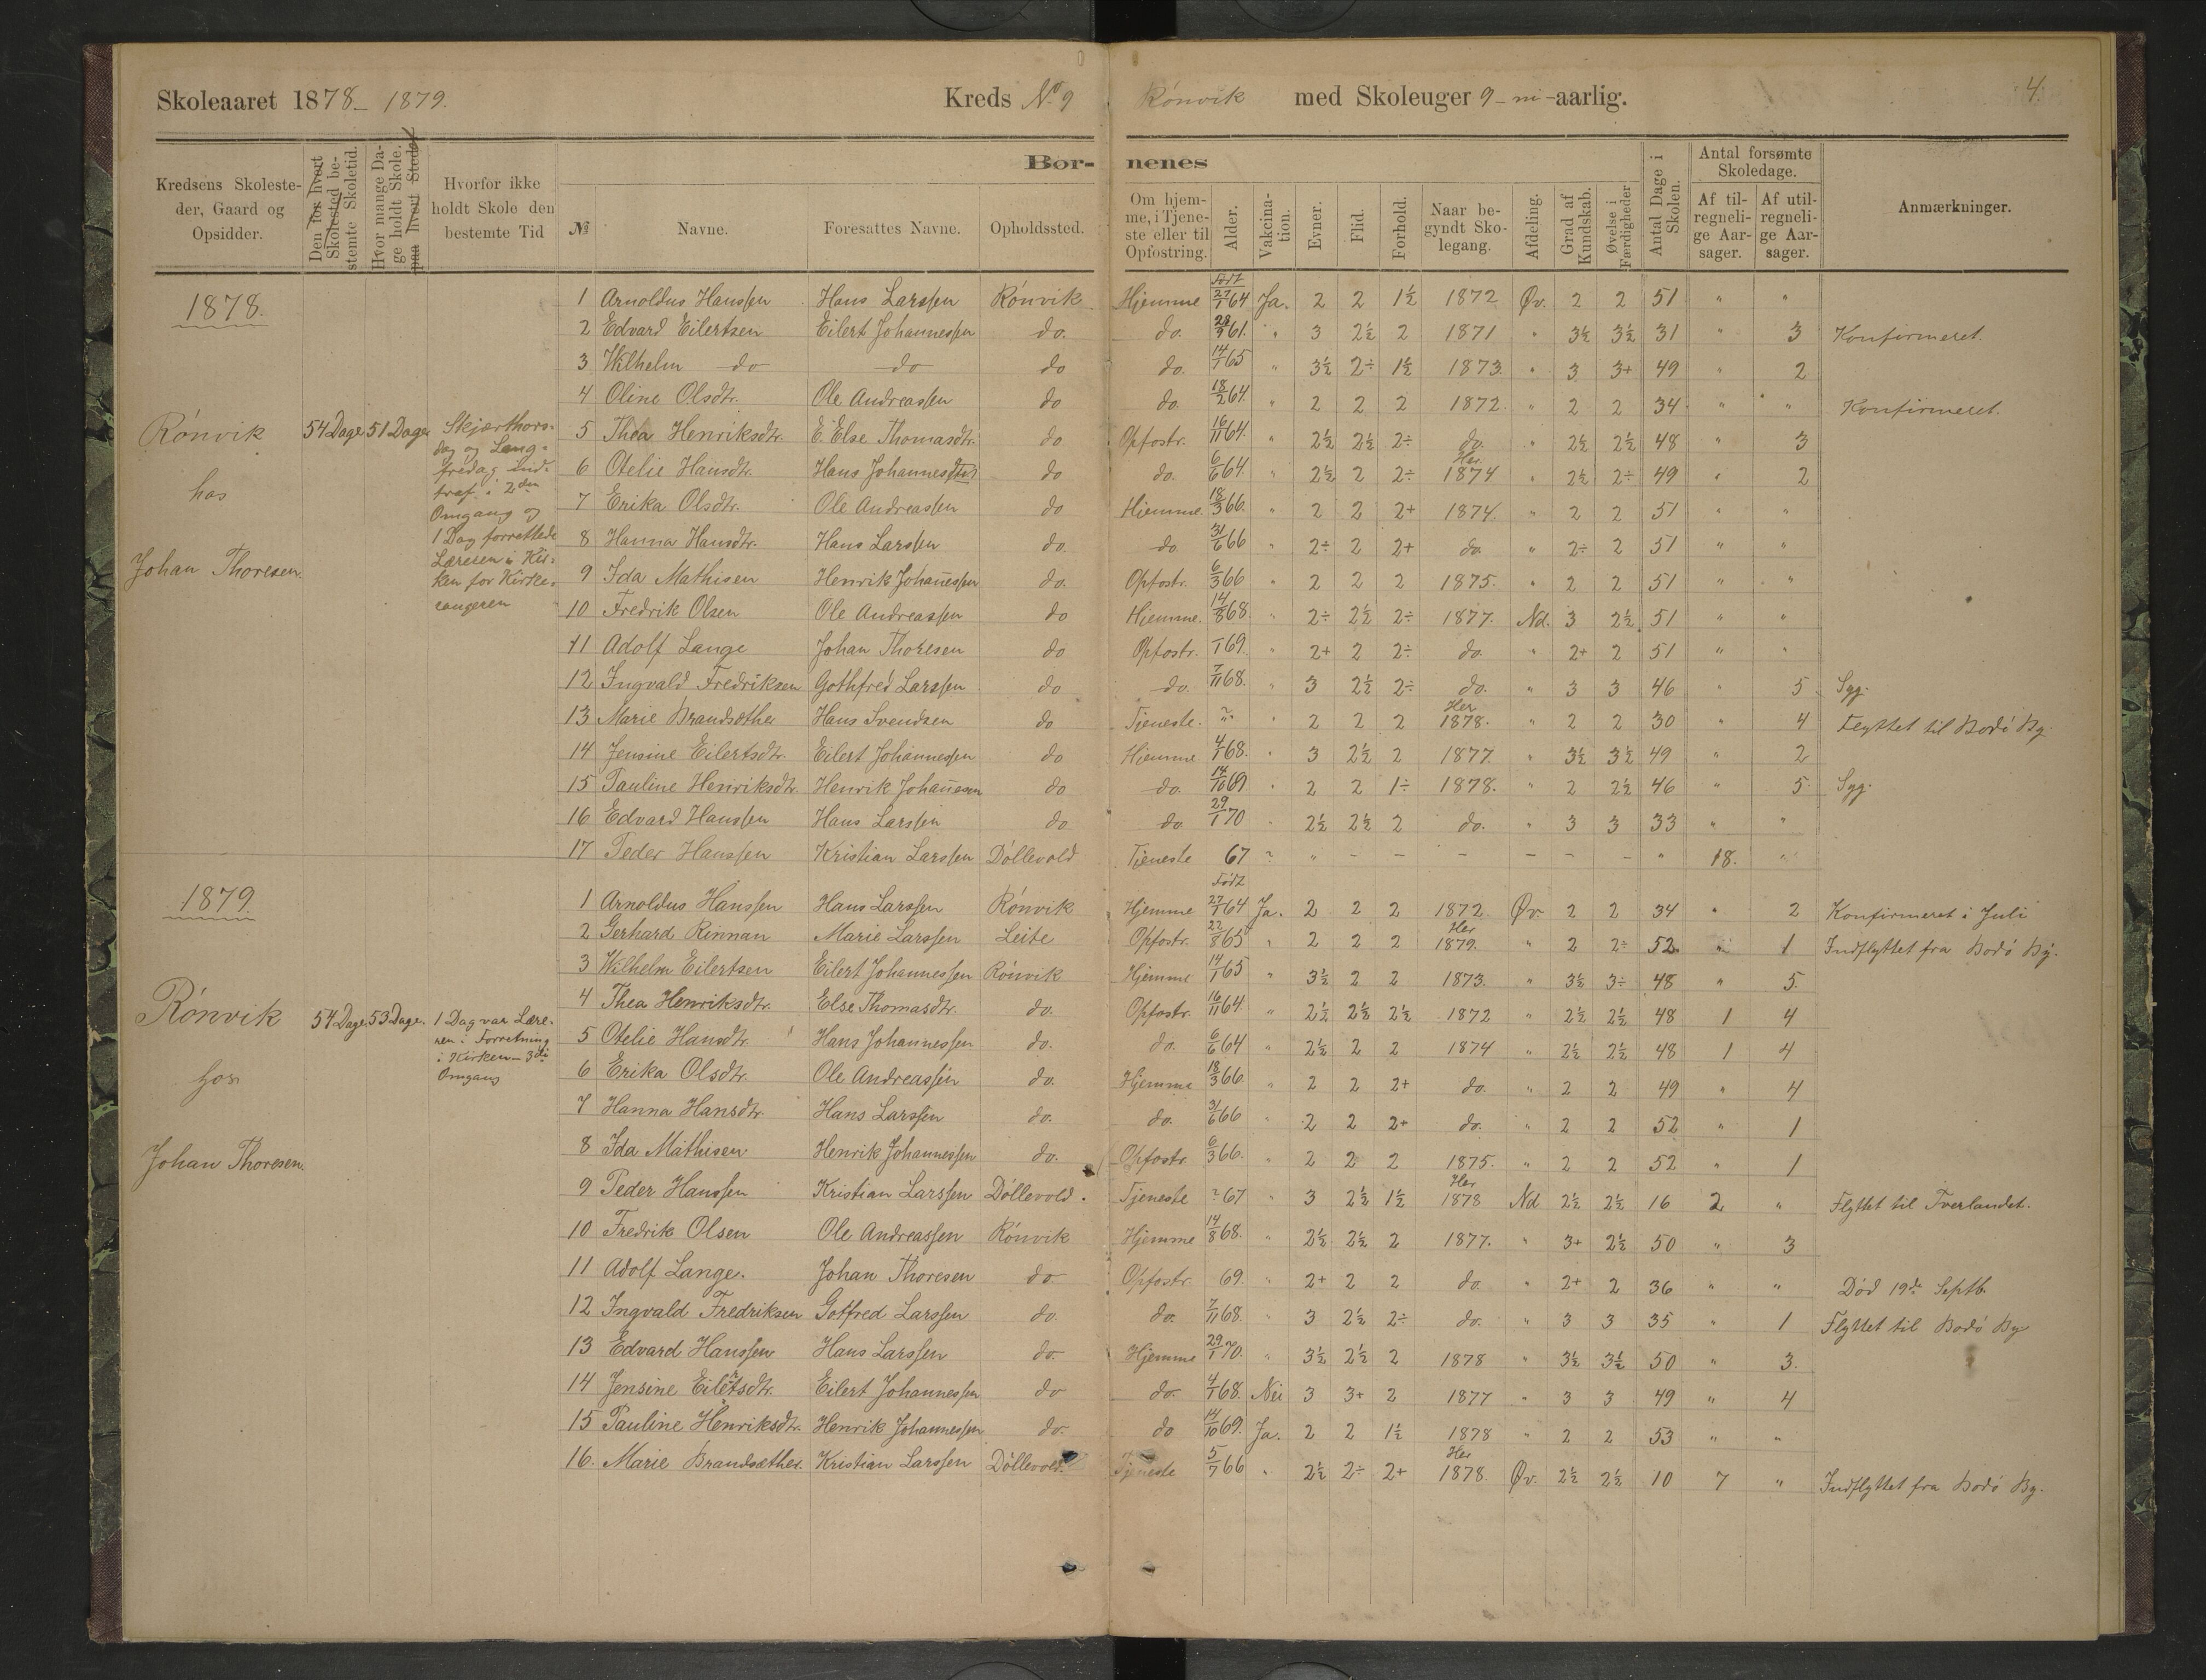 Skoleaaret 1878 - 1879. Kreds No 9 Rönvik med Skoleuger 9 - ni - aarlig. 4.
Kredsens Skolesteder, Gaard og Opsidder. Den for hvert Skolested bestemte Skoletid. Hvor mange Dage holdt Skole. paa hvert Sted Hvorfor ikke holdt Skole den bestemte Tid Børnenes
№ Navne. Foresattes Navne. Opholdssted. Om hjemme, i Tjeneste eller til Opfostring. Alder. Vakcination. Evner. Flid. Forhold. Naar begyndt Skolegang. Afdeling. Grad af Kundskab. Øvelse i Færdigheder Antal Dage i Skolen. Antal forsømte Skoledage. Af tilregnelige Aarsager. Af utilregnelige Aarsager. Anmærkninger.
1878.
Rönvik
hos
Johan Thoresen.
54 Dage 51 Dage
Skjærthors-
dag og Lang-
fredag ind-
traf i 2den
Omgang og
1 Dag forrettede
Læreren i Kir-
ken for Kirke-
sangeren
Født
1 Arnoldus Hanssen Hans Larssen Rönvik Hjemme 27/1 64 Ja. 2 2 1½ 1872 Øv. 2 2 51 " "
2 Edvard Eilertsen Eilert Johannessen do. do. 28/3 61. " 3 2½ 2 1871 " 3½ 3½ 31 " 3 Konfirmeret.
3 Wilhelm do do do do. 14/1 65 " 3½ 2÷ 1½ 1873. " 3 3+ 49 " 2
4 Oline Olsdtr. Ole Andreassen do do. 18/2 64. " 2 2 2 1872. " 2 2 34 " " Konfirmeret.
5 Thea Henriksdtr. E. Else Thomasdtr. do Opfostr. 16/11 64. " 2½ 2½ 2÷ do. " 2½ 2½ 48 " 3
6 Otelie Hansdtr. Hans Johannes do do. 6/6 64. " 2½ 2 2÷ Her 1874 " 2½ 2÷ 49 " 2
7 Erika Olsdtr. Ole Andreassen do Hjemme. 18/3 66. " 2 2 2+ 1874. " 2 2 51 " "
8 Hanna Hansdtr. Hans Larssen do. do 31/6 66 " 2÷ 2 2+ do. " 2÷ 2 51 " "
9 Ida Mathisen Henrik Johan̄essen do. Opfostr. 6/3 66 " 2 2 2 1875. " 2 2 51 " "
10 Fredrik Olsen Ole Andreassen do Hjemme. 14/8 68. " 2÷ 2½ 2÷ 1877. Nd. 3 2½ 51 " "
11 Adolf Lange Johan Thoresen do Opfostr. 69. " 2+ 2 2÷ do. " 2+ 2 51 " "
12 Ingvald Fredriksen Gothfred Larssen do do. 7/11 68. " 3 2½ 2÷ do. " 3 3 46 " 5 Syg.
13 Marie Brandsæther Hans Svendsen do Tjeneste. ? " 2 2 2 Her 1878. " 2 2 30 " 4 Flyttet til Bodö By.
14 Jensine Eilertsdtr. Eilert Johannessen do Hjemme 4/1 68. " 3 2½ 2 1877. " 3½ 3½ 49 " 2
15 Pauline Henriksdtr. Henrik Johan̄esen do do. 14/10 69 " 2 2 1÷ 1878. " 2 2½ 46 " 5 Syg.
16 Edvard Hanssen Hans Larssen do do 29/1 70 " 2½ 2½ 2 do. " 3 3 33 " "
17 Peder Hanssen Kristian Larssen Döllevold Tjeneste 67 ? " - - - - - - " 18. "
1879.
Rönvik
hos
Johan Thoresen.
54 Dage. 53 Dage.
1 Dag var Lære-
ren i Forretning
i Kirken - 3di
Omgang
Født
1 Arnoldus Hanssen Hans Larssen Rönvik Hjemme 27/1 64 Ja. 2 2 2 1872 Øv. 2 2 34 " 2 Konfirmeret i Juli
2 Gerhard Rinnan Marie Larssen Leite Opfostr. 22/8 65 " 2 2 2 Her 1879. " 2 2÷ 52 " 1 Indflyttet fra Bodö By.
3 Wilhelm Eilertsen Eilert Johannessen Rönvik Hjemme 14/1 65 " 3½ 2 2 1873. " 3½ 3÷ 48 " 5.
4 Thea Henriksdtr. Else Thomasdtr. do. Opfostr. 16/11 64. " 2½ 2½ 2½ 1872 " 2½ 2½ 48 1 4
5 Otelie Hansdtr. Hans Johannessen do. do. 6/6 64 " 2½ 2 2 1874 " 2½ 2½ 48 1 4
6 Erika Olsdtr. Ole Andreassen do. Hjemme 18/3 66 " 2 2 2+ do. " 2 2 49 " 4
7 Hanna Hansdtr. Hans Larssen do. do. 31/6 66 " 2 2 2+ do. " 2 2 52 " 1
8 Ida Mathisen Henrik Johannessen do. Opfostr. 6/3 66. " 2 2 2 1875. " 2 2 52 " 1
9 Peder Hanssen Kristian Larssen Döllevold. Tjeneste ? 67 " 3 2½ 1½ Her 1878 Nd 2½ 2½ 16 2 " Flyttet til Tverlandet.
10 Fredrik Olsen Ole Andreassen Rönvik Hjemme 14/8 68. " 2½ 2½ 2 1877. " 3+ 2½ 50 " 3
11 Adolf Lange. Johan Thoresen do Opfostr. 69. " 2+ 2 2 do. " 2+ 2 36 " " Död 19de Septb.
12 Ingvald Fredriksen Gotfred Larssen do. do. 7/11 68. " 3 2½ 2÷ do. " 3 3 35 " 1 Flyttet til Bodö By
13 Edvard Hanssen Hans Larssen do. Hjemme 29/1 70. " 3½ 2½ 2 1878 " 3½ 3½ 50 " 3.
14 Jensine Eilertsdtr. Eilert Johannessen do do. 4/1 68. Nei 3 3+ 2 1877 " 3 3 49 " 4
15 Pauline Henriksdtr. Henrik Johannessen do. do 14/10 69. Ja. 2 2 1½ 1878 " 2 2 53 " "
16. Marie Brandsæther. Kristian Larssen Döllevold. Tjeneste 5/7 66 " 2½ 2÷ 2+ Her 1878. Øv. 2½ 2½ 10 7 " Indflyttet fra Bodö By.